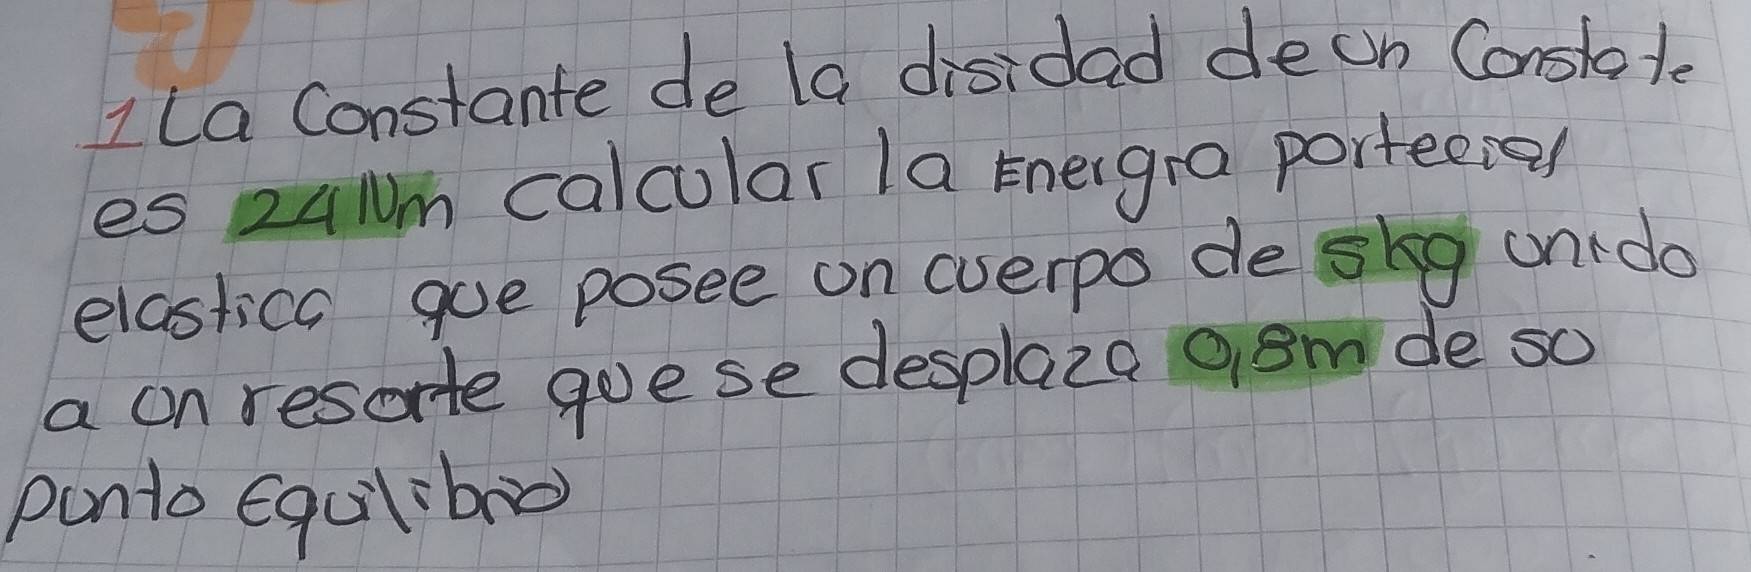 1 La Constante de la disidad de un Constate
es 24 Nm calcular la Energia porteecial
elastica que posee un cuerpo de 5kg unido
a un resorte que se desplaza 0,8m de su
punto Equilibrio